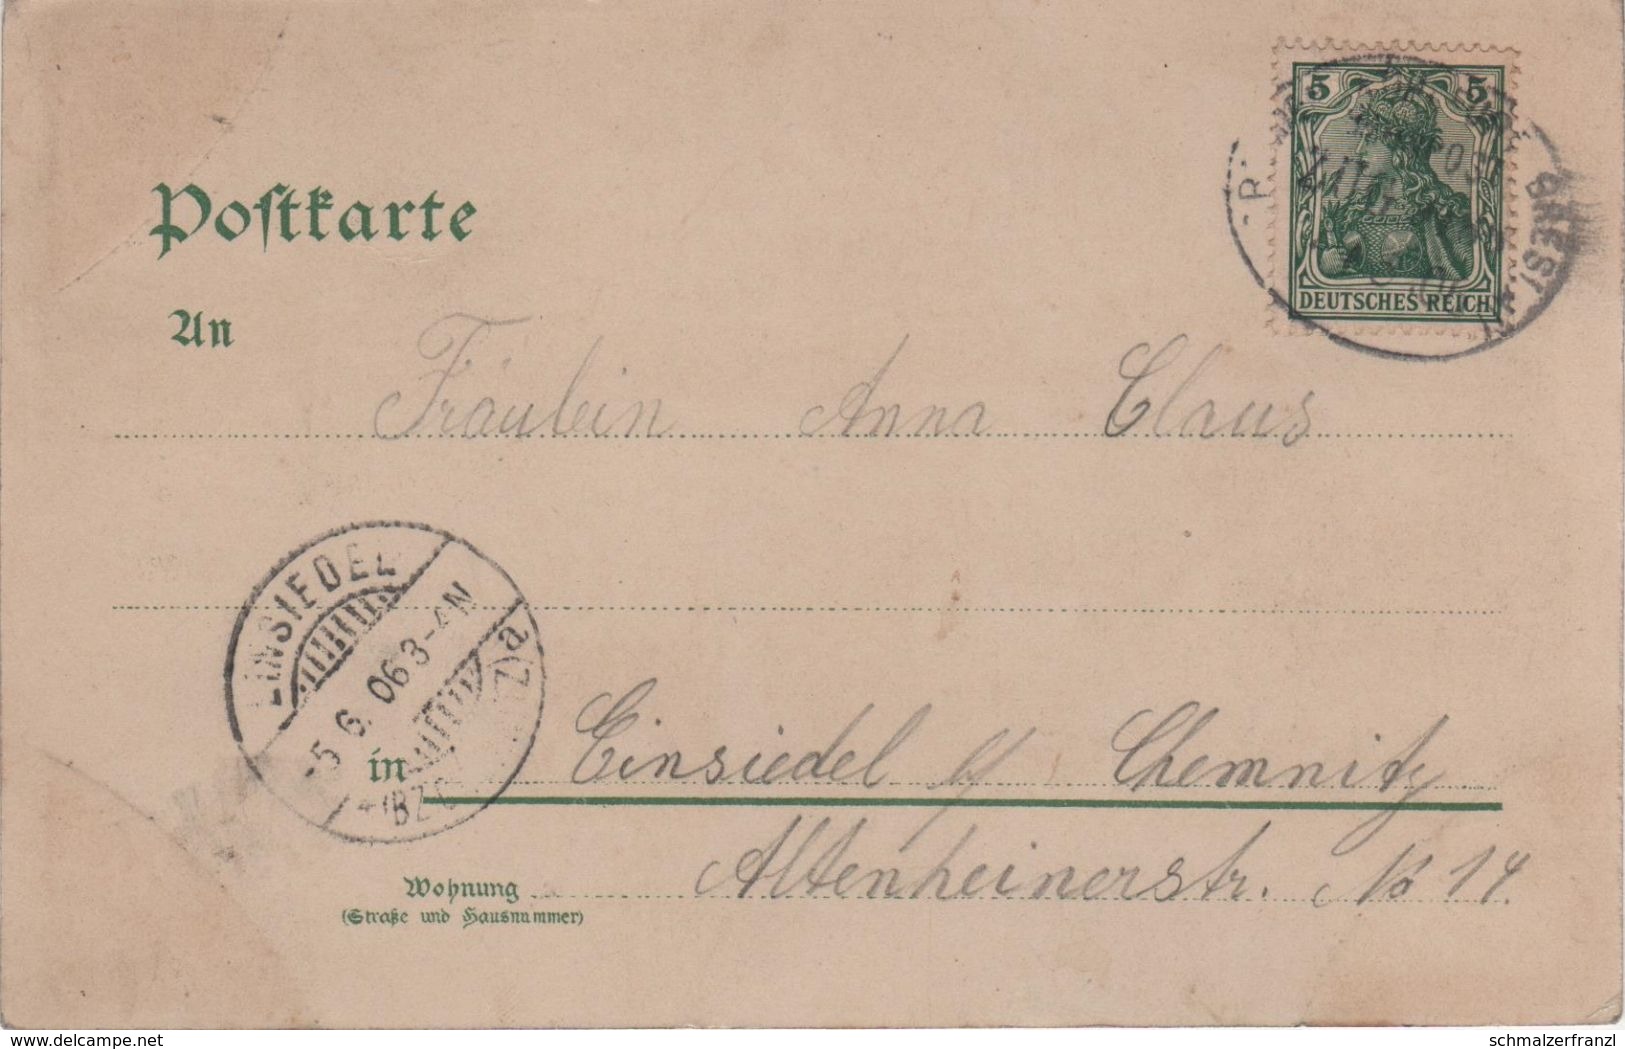 5 5
DEUTSCHES REICH
BRESLAU
Postkarte
An
Fräulein Anna Claus
EINSIEDEL
-5. 6. 06 3-4N
a
in Einsiedel b/ Chemnitz
Altenheinerstr. No 14.
Wohnung
(Straße und Hausnummer)
delcampe.net
schmalzerfranzl